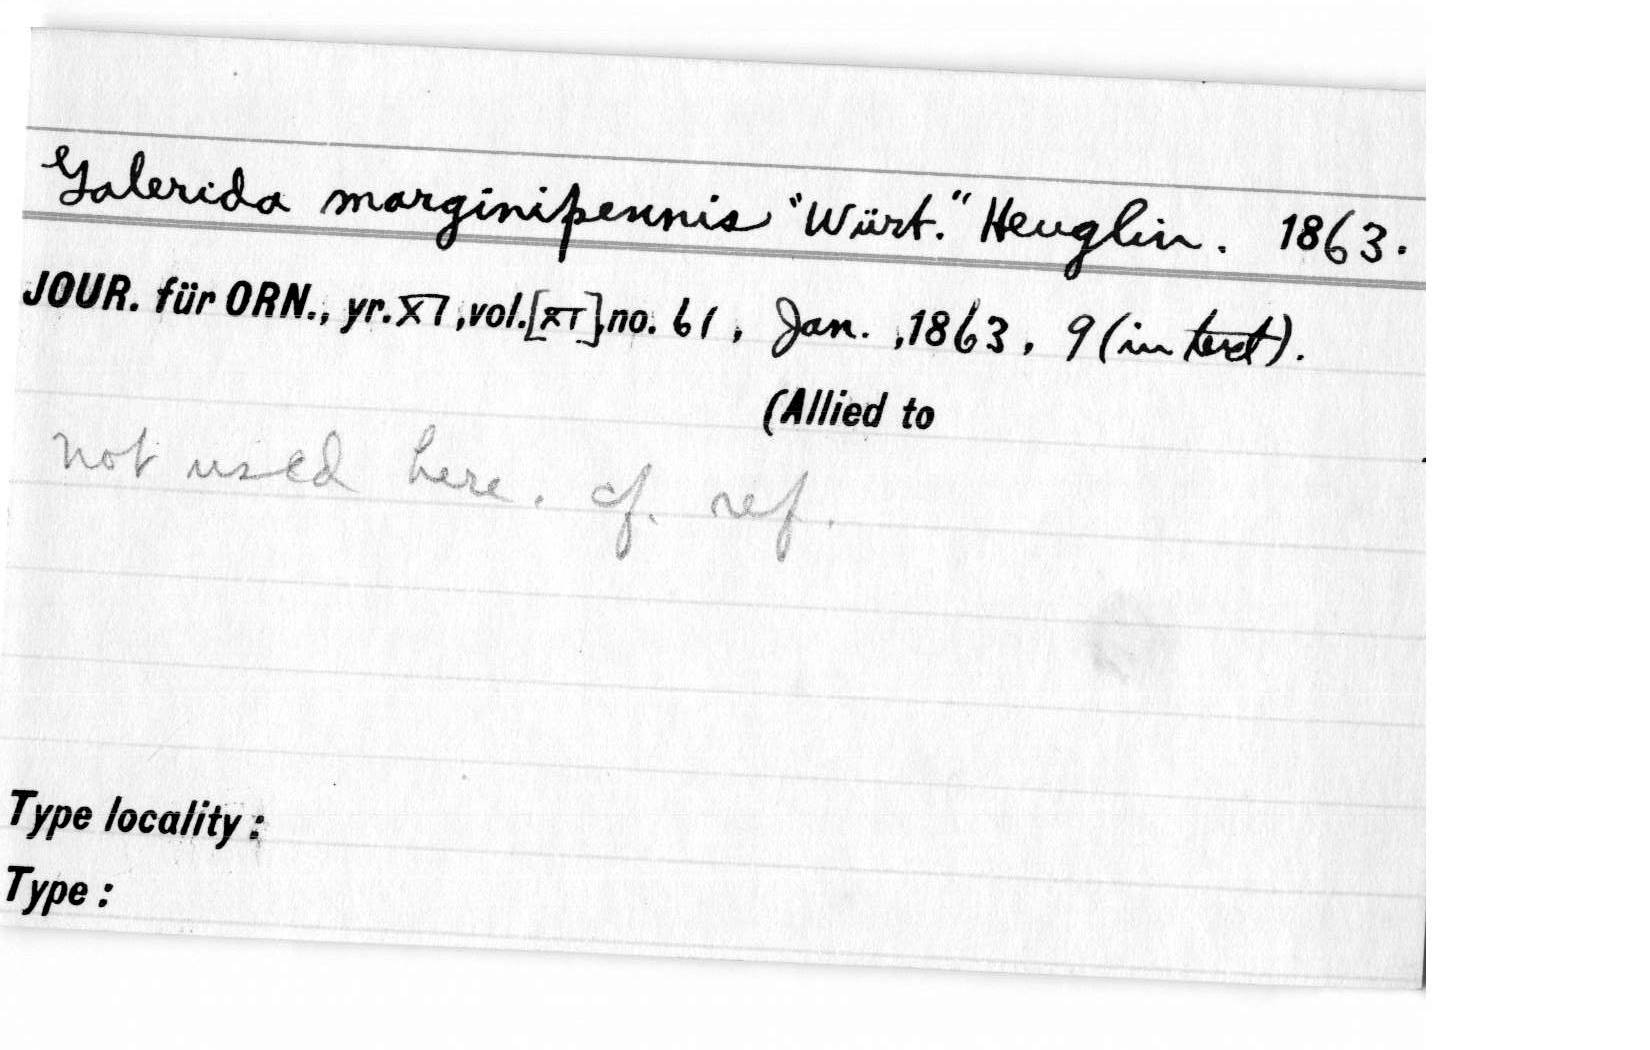 Galerida marginipennis "Würt." Heuglin. 1863.
JOUR. für ORN., yr. XI, vol. [XI], no. 61, Jan. , 1863, 9 (in text).
(Allied to
not used here. cf. ref.
Type locality:
Type: